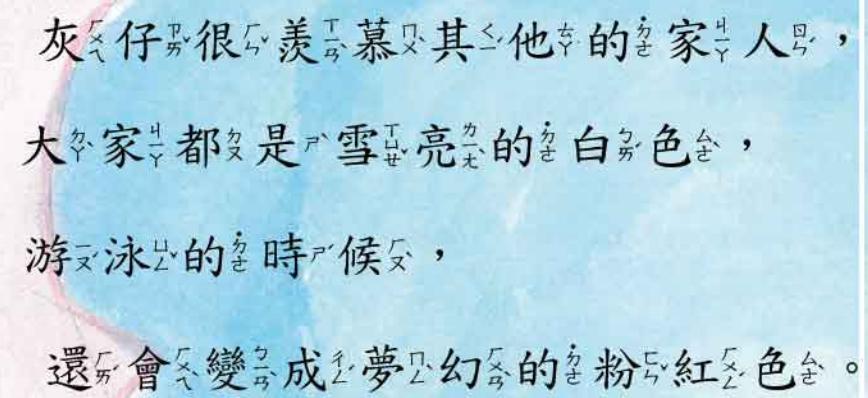 灰仔很羨慕其他的家人，
大家都是雪亮的白色，
游泳的時候，
還會變成夢幻的粉紅色。